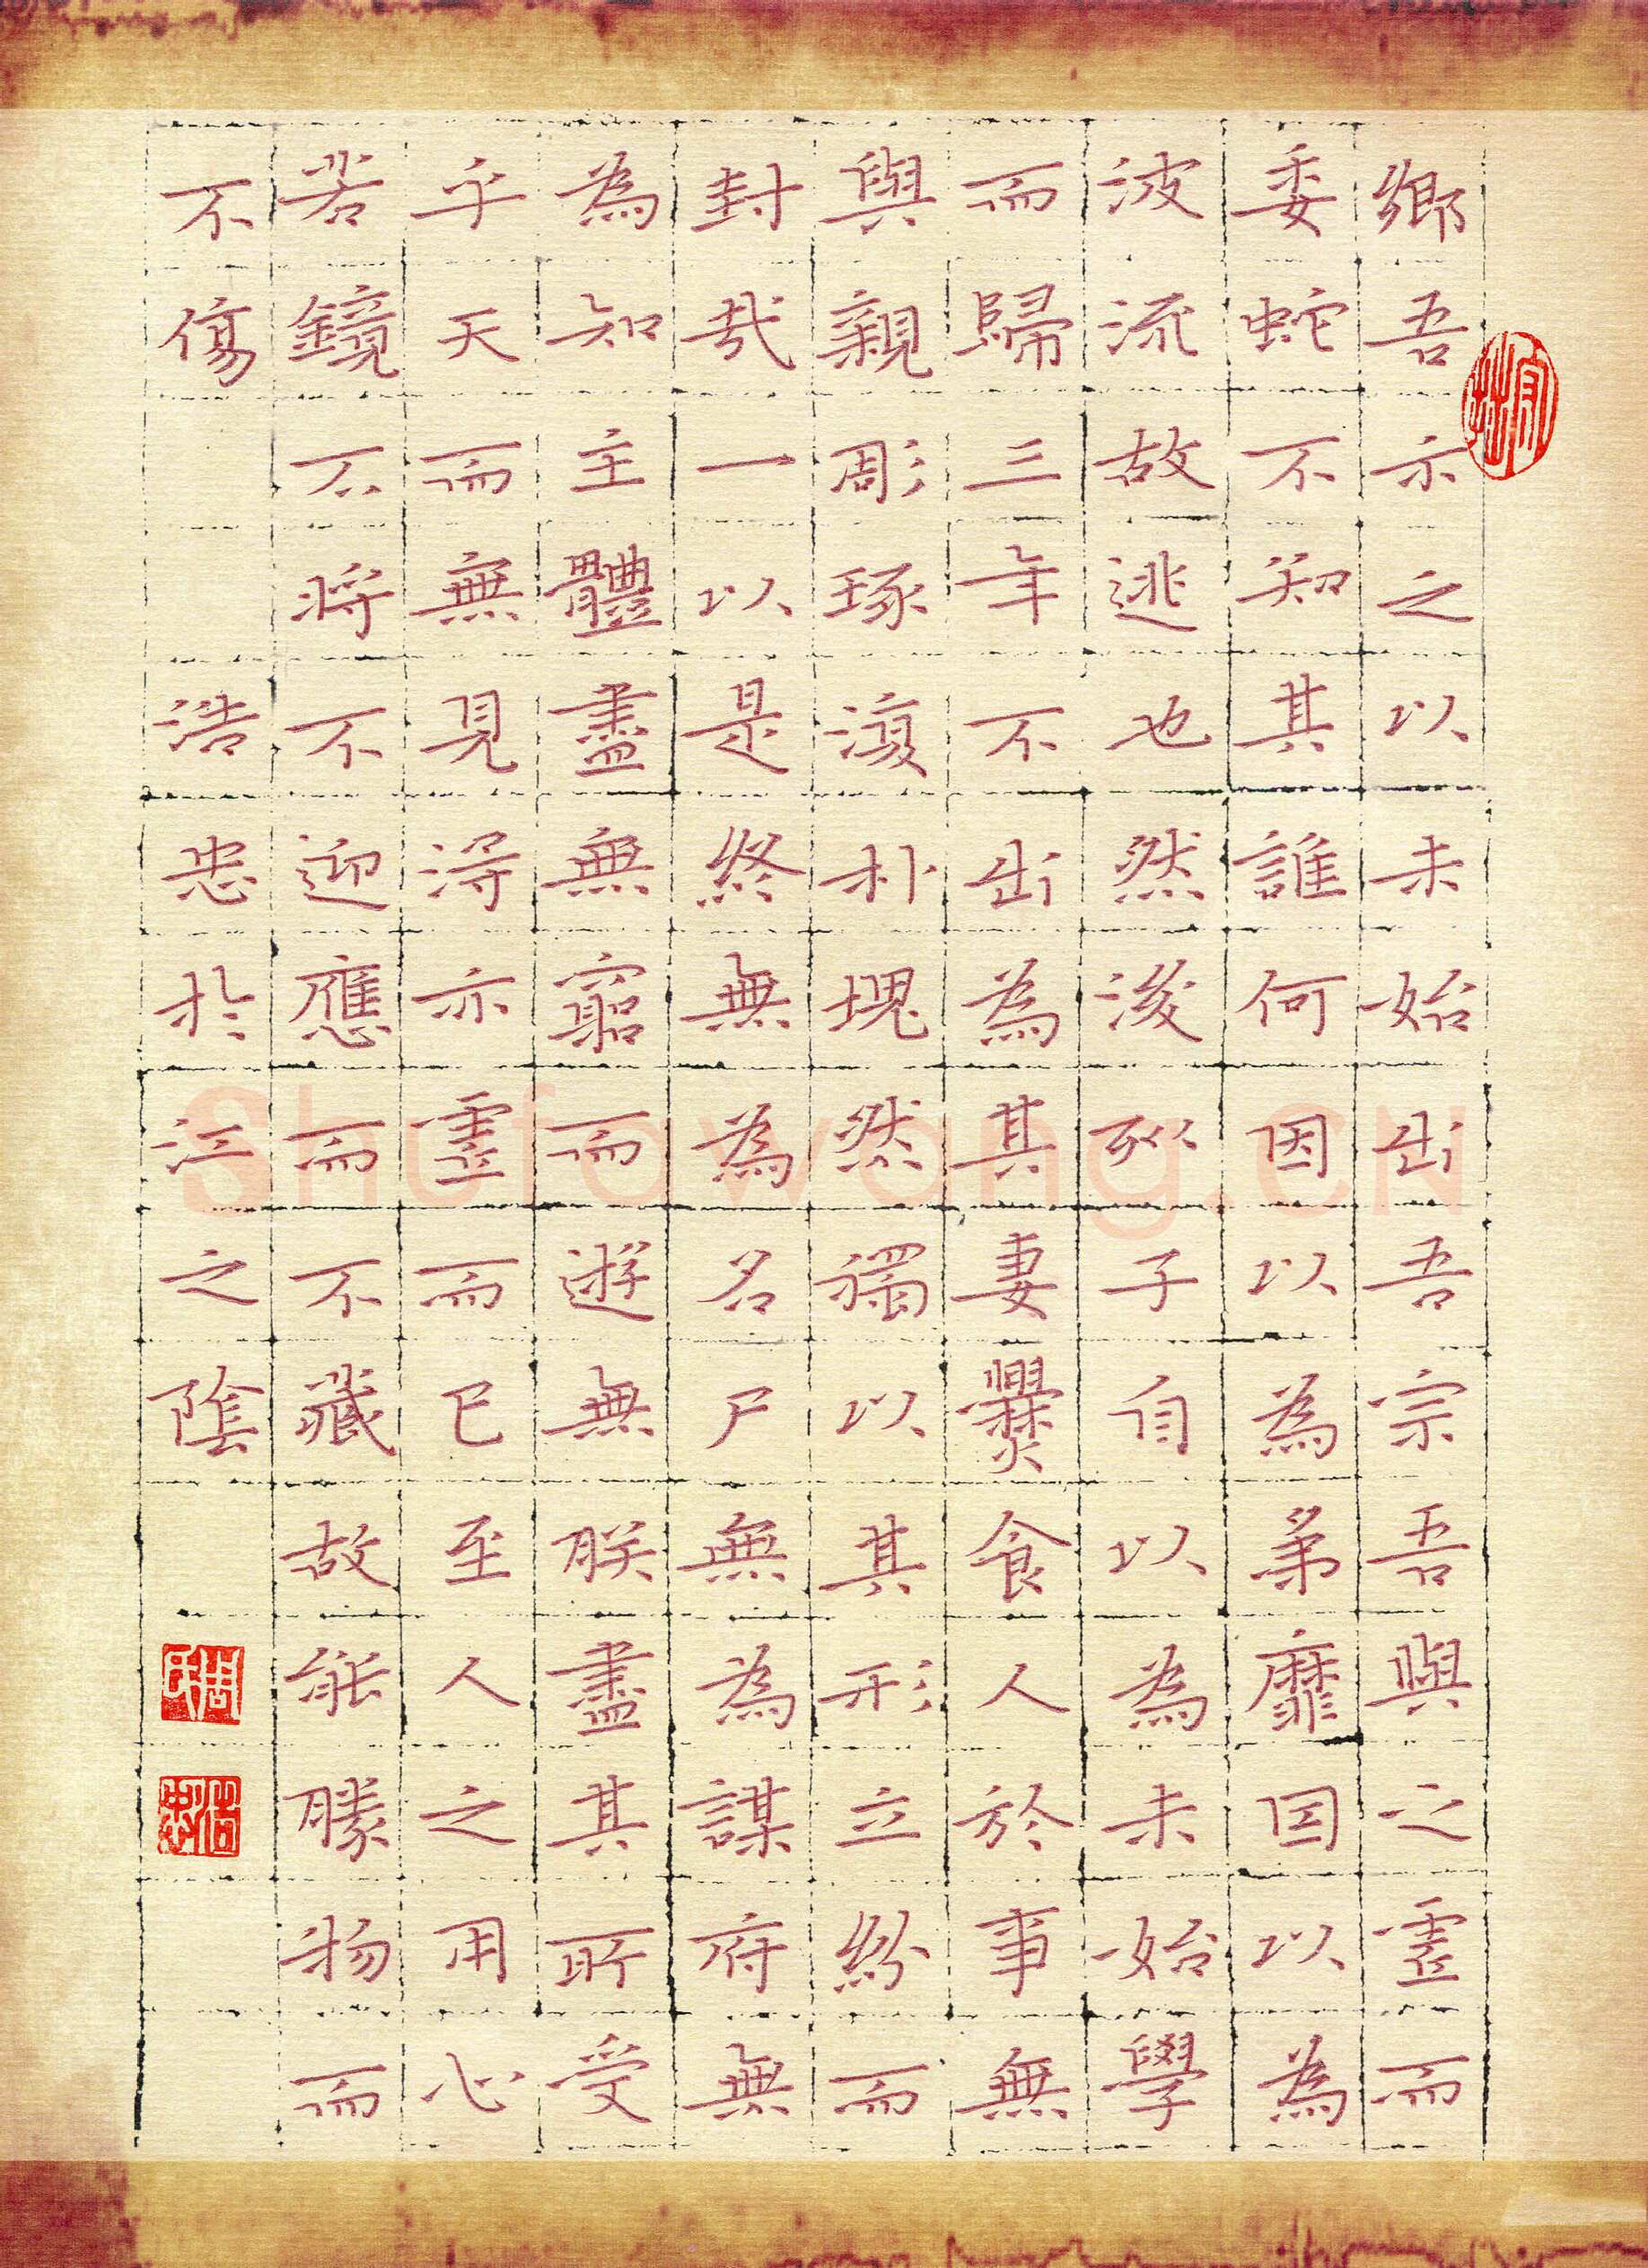 鄉吾示之以未始出吾宗吾與之虛而
委蛇不知其誰何因以為弟靡因以為
波流故逃也然後列子自以為未始學
而歸三年不出為其妻爨食人於事無
與親彫琢復朴塊然獨以其形立紛而
封哉一以是終無為名尸無為謀府無
為知主體盡無窮而遊無朕盡其所受
乎天而無見得亦虛而已至人之用心
若鏡不將不迎應而不藏故能勝物而
不傷 浩忠於江之陰
周氏
浩忠
Shufawang.CN